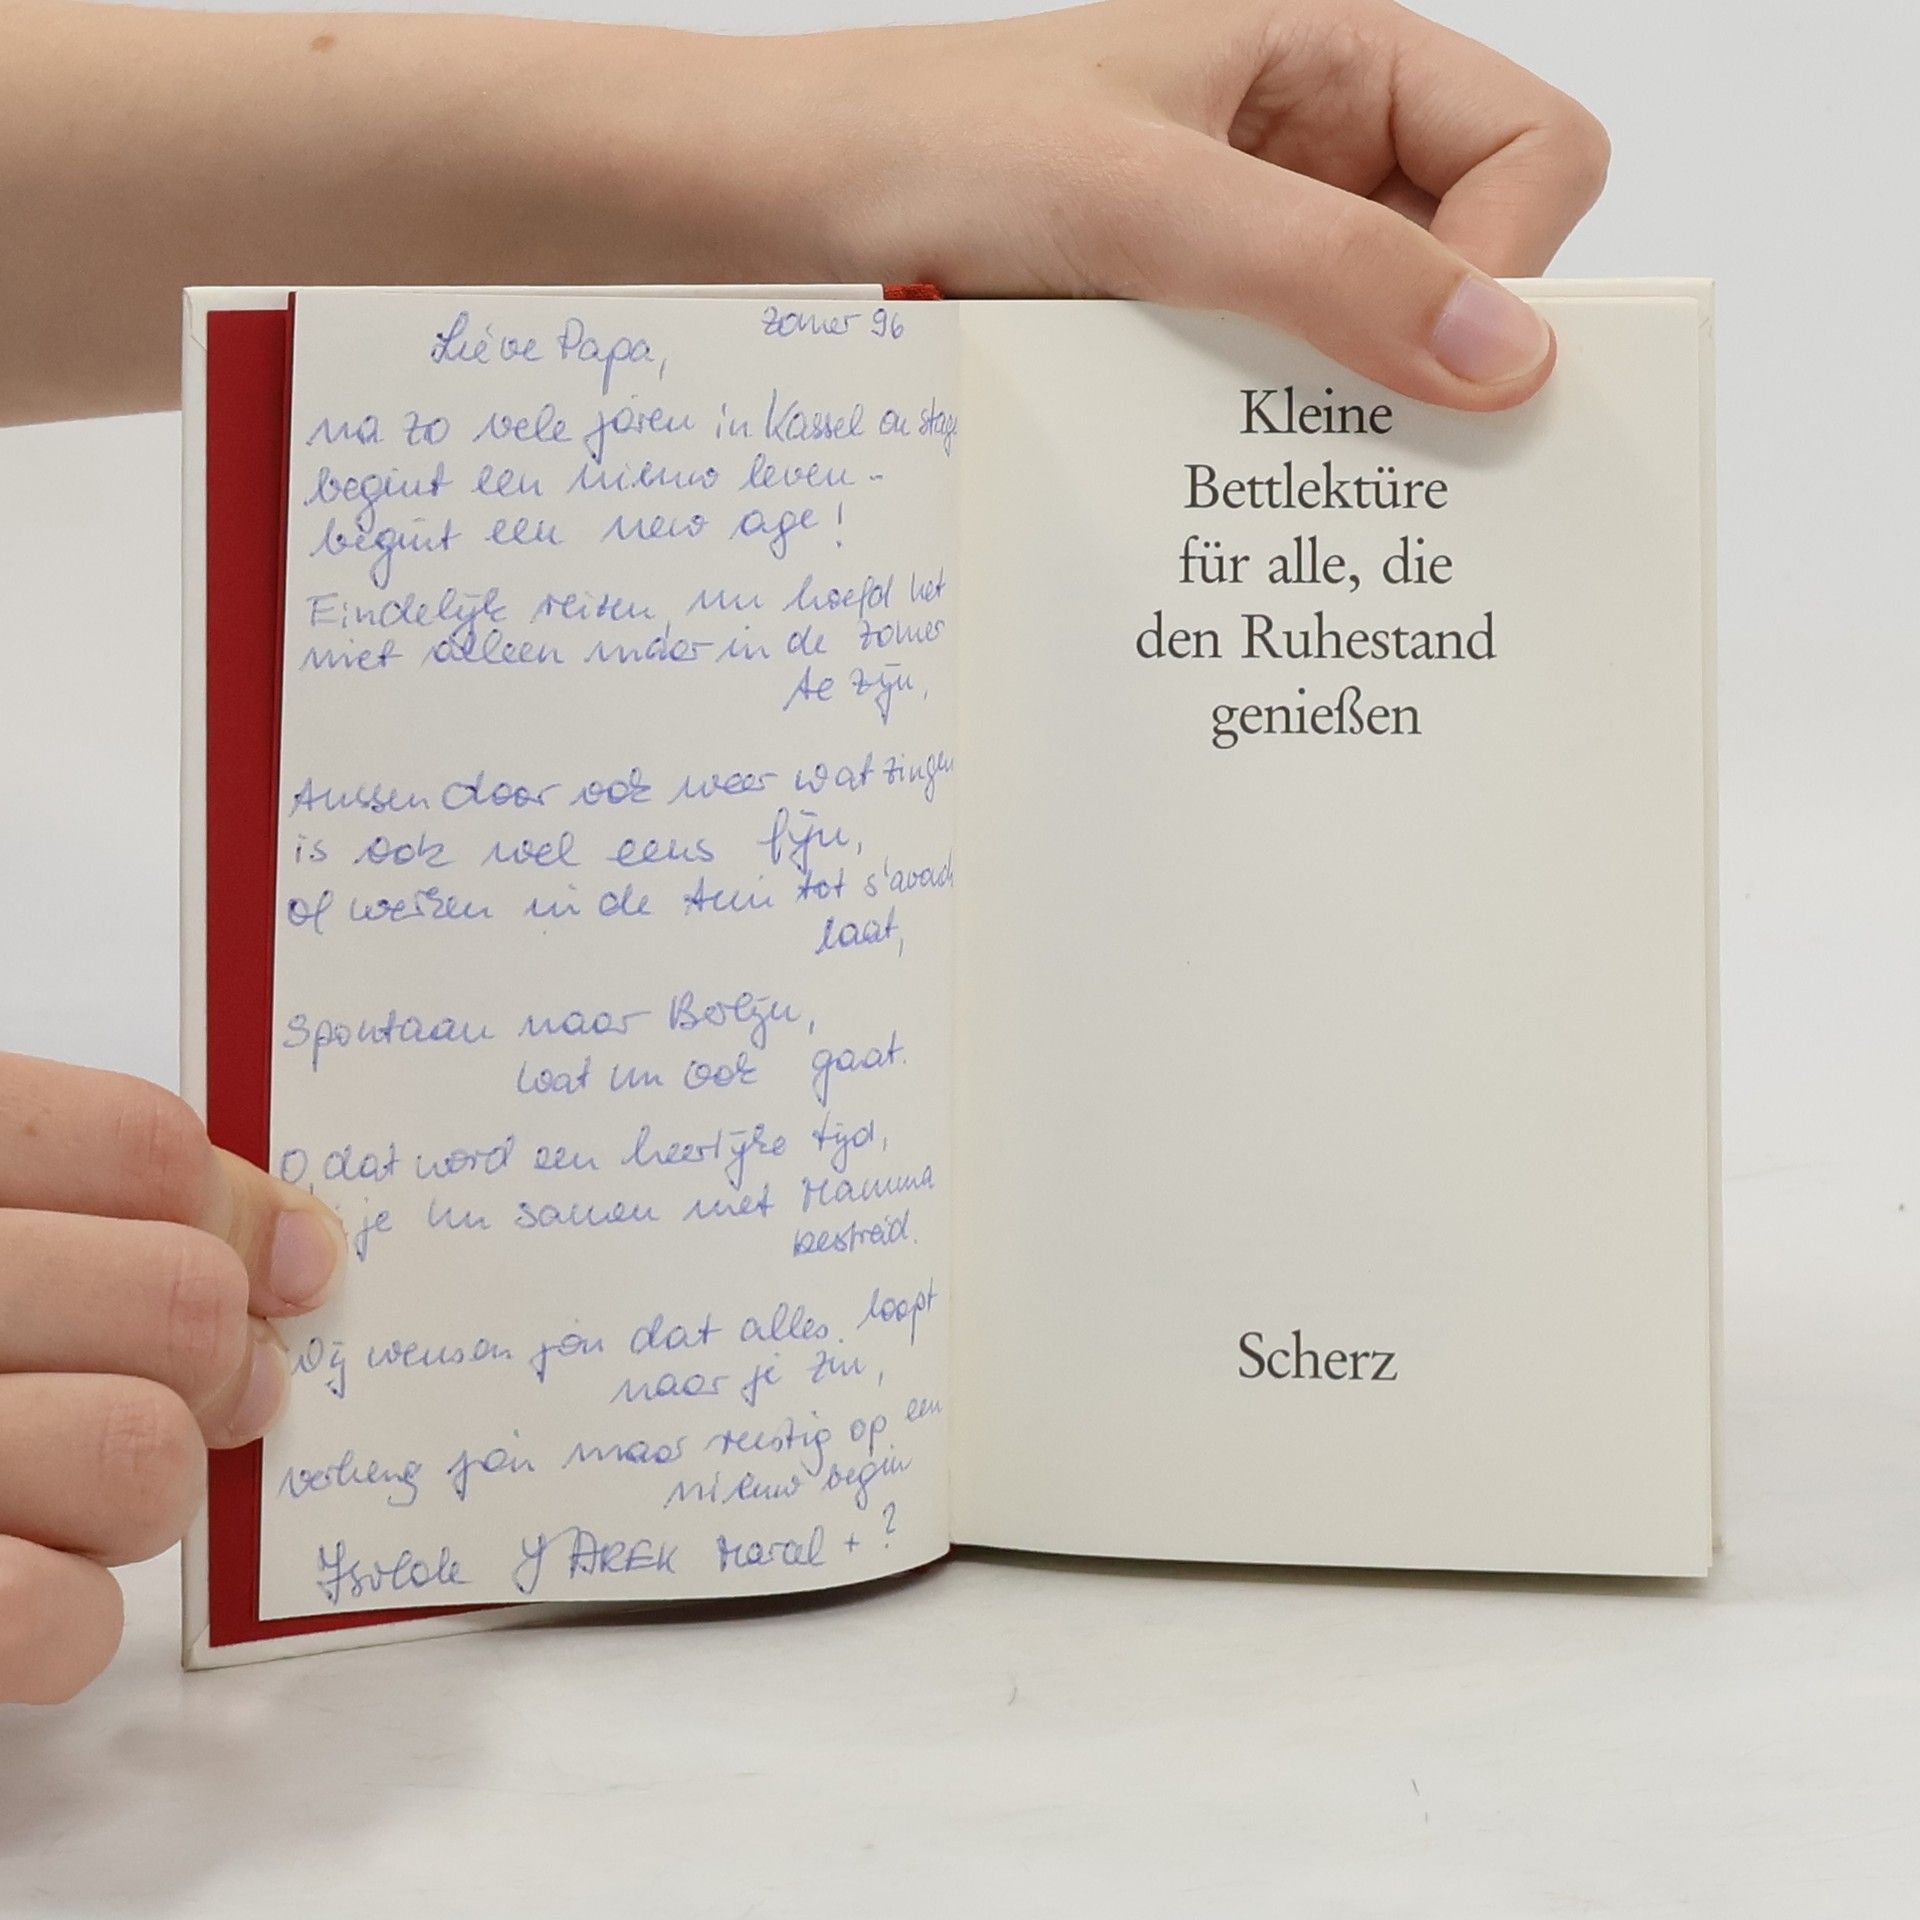 Zomer 96
Liéve Papa,
na zo vele jaren in Kassel on stage
begint een nieuw leven -
begint een new age!
Eindelijk reisen, nu hoefd het
niet alleen maar in de zomer
te zijn,
Aussendoor ook weer wat zingen
is ook wel eens fijn,
of werken in de tuin tot s'avonds
laat,
Spontaan naar Berlijn,
wat nu ook gaat.
O, dat word een heerlijke tijd,
je nu samen met Mamma
bestreid.
Wij wensen jou dat alles loopt
naar je zin,
verheug jou maar rustig op een
nieuw begin
Isolde YAREK Marcel + ?
Kleine
Bettlektüre
für alle, die
den Ruhestand
genießen
Scherz